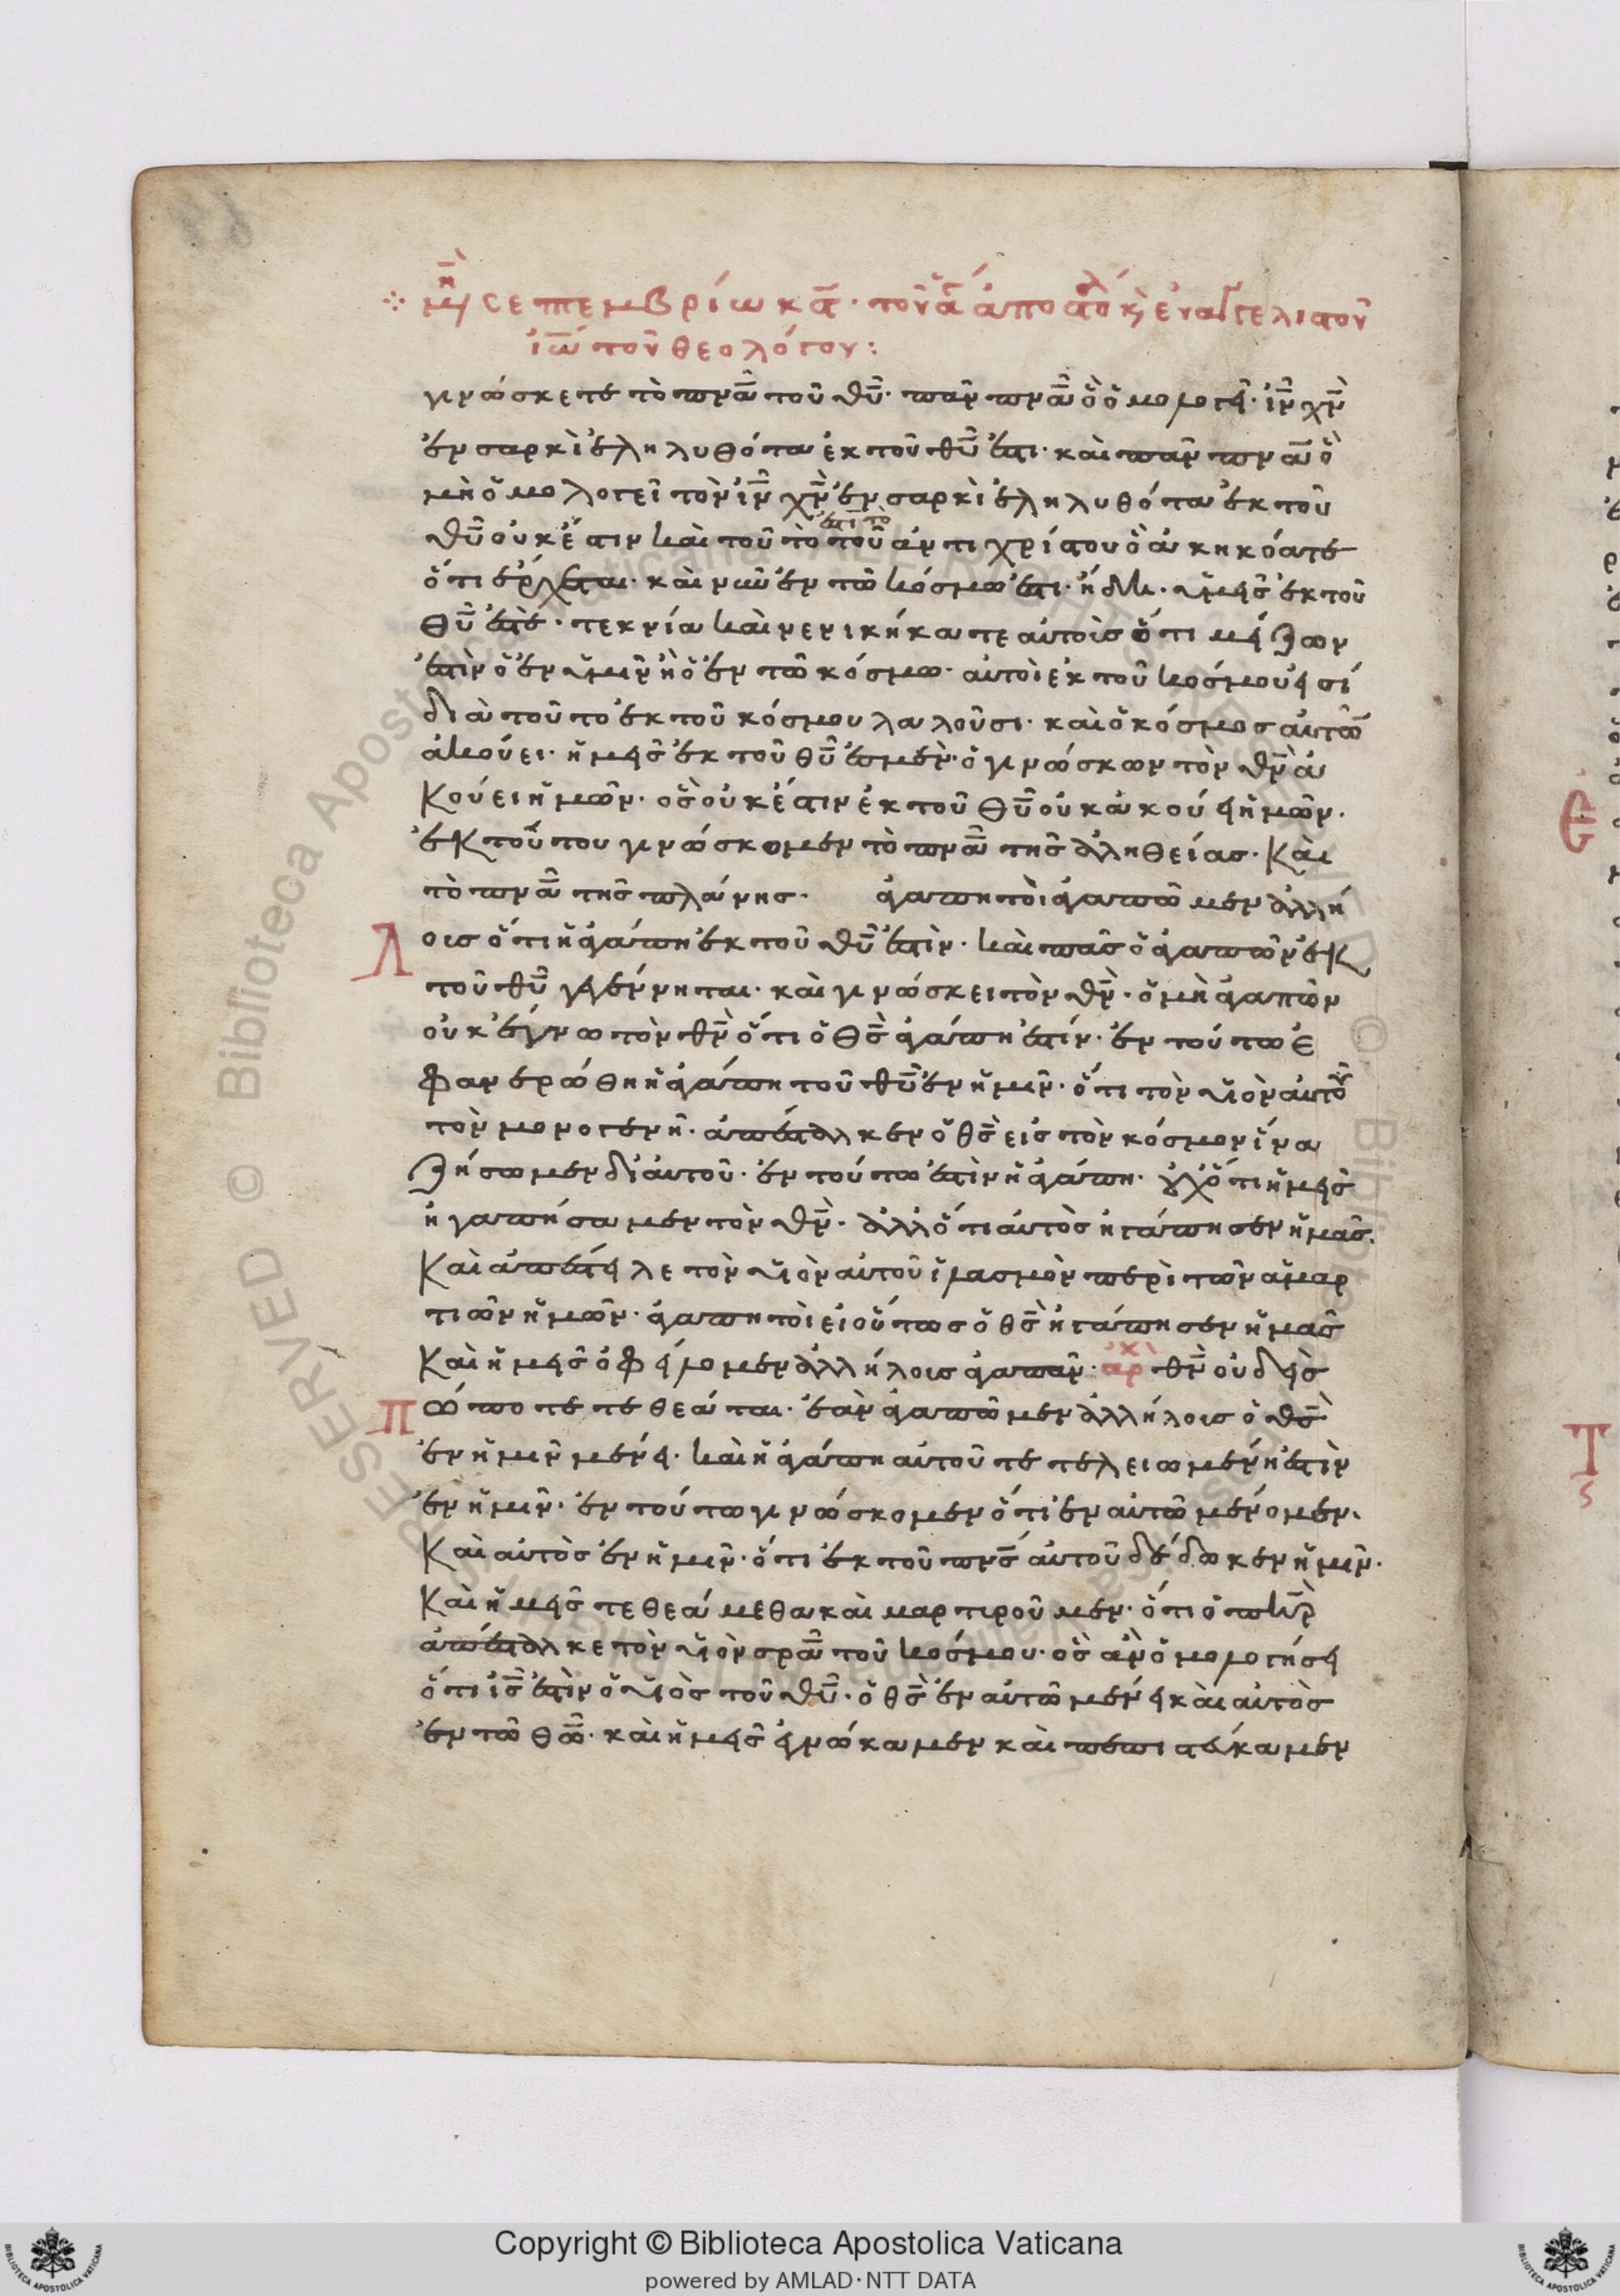 μη σεπτεμβρίω κα̅· τοῦ ἁγί ἀποστολ κ, εὐαγγελιστοῦ
ἰω̅ τοῦ θεολόγου:
γινώσκετε τὸ πνα̅ τοῦ θυ̅· πᾶν πνα̅ ὃ ὁμολογεῖ· ιν̅ χν̅
ἐν σαρκὶ ἐληλυθότα ἐκ τοῦ θυ̅ ἐστι· καὶ πᾶν πνα̅ ὃ
μὴ ὁμολογεῖ τὸν ιν̅ χν̅ ἐν σαρκὶ ἐληλυθότα ἐκ τοῦ
ἐστὶ τὸ
θυ̅ οὐκ ἔστιν καὶ τοῦτο τοῦ ἀντιχρίστου ὃ ἀκηκόατε
ὅτι ἔρχεται· καὶ νῦν ἐν τῶ κόσμω ἐστι· ἤδη· ὑμεῖς ἐκ τοῦ
θυ̅ ἐστέ· τεκνία καὶ νενικήκατε αὐτοὶσ ὅτι μείζων
ἐστὶν ὁ ἐν ὑμῖν ἢ ὁ ἐν τῶ κόσμω· αὐτοὶ ἐκ τοῦ κόσμου εἰσί
διὰ τοῦτο ἐκ τοῦ κόσμου λαλοῦσι· καὶ ὁ κόσμος αὐτῶ
ἀκούει· ἡμεῖς ἐκ τοῦ θυ̅ ἐσμέν· ὁ γινώσκων τὸν θν̅ ἀ
κούει ἡμῶν· ὃς οὐκ έστιν ἐκ τοῦ θυ̅ οὐκ ἀκούει ἡμῶν·
ἐκ τούτου γινώσκομεν τὸ πνα̅ τῆς ἀληθείας· καὶ
τὸ πνα̅ τῆς πλάνης· ἀγαπητοὶ ἀγαπῶμεν ἀλλή
Λ οις ὅτι ἡ ἀγάπη ἐκ τοῦ θυ̅ ἐστὶν· καὶ πᾶς ὁ ἀγαπῶν ἐκ
τοῦ θυ̅ γεγέννηται· καὶ γινώσκει τὸν θν̅· ὁ μὴ ἀγαπῶν
οὐκ ἔγνω τὸν θν̅ ὅτι ὁ θς̅ ἀγάπη ἐστίν· ἐν τούτω ἐ
φανερώθη ἡ ἀγάπη τοῦ θυ̅ ἐν ἡμῖν· ὅτι τὸν υἱὸν αὐτοῦ
τὸν μονογενῆ· ἀπέσταλκεν ὁ θς̅ εἰς τὸν κόσμον ἵνα
ζήσωμεν δι' αὐτοῦ· ἐν τούτω ἐστὶν ἡ ἀγάπη· οὐχ ὅτι ἡμεῖς
ἠγαπήσαμεν τὸν θν̅· ἀλλ' ὅτι αὐτὸς ἠγάπησεν ἡμᾶς·
Καὶ ἀπέστειλε τὸν υἱὸν αὐτοῦ ἱλασμὸν περὶ τῶν ἁμαρ
τιῶν ἡμῶν· ἀγαπητοὶ εἰ οὕτως ὁ θς̅ ἠγάπησεν ἡμᾶς
Καὶ ἡμεῖς ὀφείλομεν ἀλλήλοις ἀγαπᾶν· ἀρχ θν̅ οὐδεὶς
Π ώποτε τεθέαται· ἐὰν ἀγαπῶμεν ἀλλήλοις ὁ θς̅
ἐν ἡμῖν μένει· καὶ ἡ ἀγάπη αὐτοῦ τετελειωμένη ἐστὶν
ἐν ἡμῖν· ἐν τούτω γινώσκομεν ὅτι ἐν αὐτῶ μένομεν·
Καὶ αὐτὸς ἐν ἡμῖν· ὅτι ἐκ τοῦ πνς̅ αὐτοῦ δέδωκεν ἡμῖν·
Καὶ ἡμεῖς τεθεάμεθα καὶ μαρτιροῦμεν· ὅτι ὁ πηρ̅
ἀπέσταλκε τὸν υἱὸν σρα̅ τοῦ κόσμου· ὃς ἂν ὁμολογήσει
ὅτι ις̅ ἐστὶν ὁ υἱὸς τοῦ θυ̅· ὁ θς̅ ἐν αὐτῶ μένει καὶ αὐτὸς
ἐν τῶ θω̅· καὶ ἡμεῖς ἐγνώκαμεν καὶ πεπιστεύκαμεν
Ε
Τ
ς
Copyright © Biblioteca Apostolica Vaticana
powered by AMLAD·NTT DATA